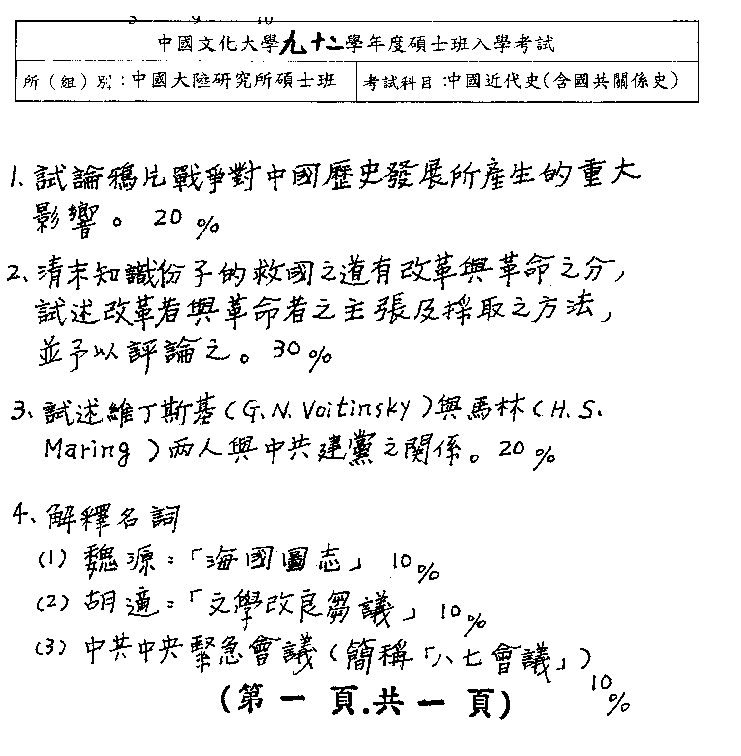 中國文化大學九十二學年度碩士班入學考試
所（組）別：中國大陸研究所碩士班 考試科目：中國近代史(含國共關係史)
1、試論鴉片戰爭對中國歷史發展所產生的重大
影響。20%
2、清末知識份子的救國之道有改革與革命之分，
試述改革者與革命者之主張及採取之方法，
並予以評論之。30%
3、試述維丁斯基(G.N.Voitinsky)與馬林(H.S.
Maring)兩人與中共建黨之關係。20%
4、解釋名詞
(1) 魏源：「海國圖志」10%
(2) 胡適：「文學改良芻議」10%
(3) 中共中央緊急會議(簡稱「八七會議」)
10%
(第一頁.共一頁)